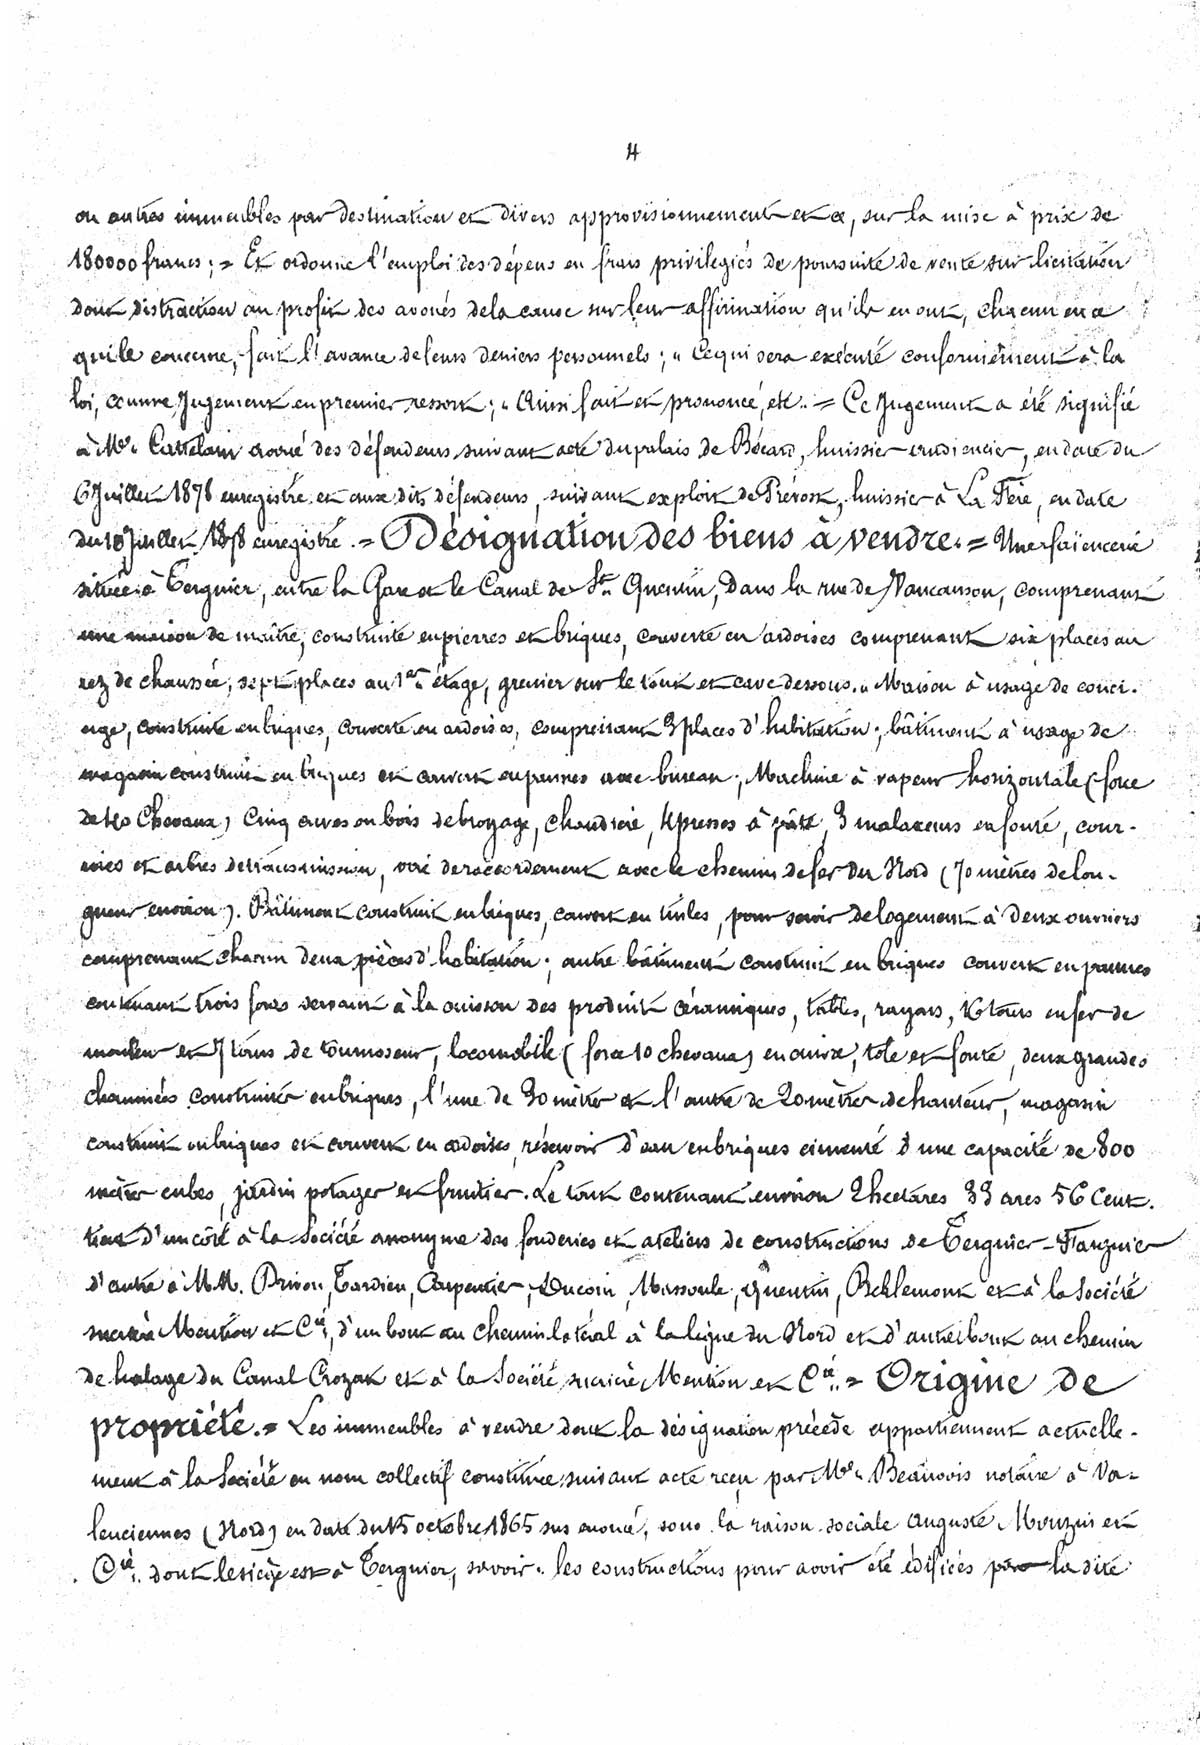 4
ou autres immeubles par destination et divers approvisionnement et a, sur la mise à prix de
180000 francs ; = Et ordonne l'emploi des dépens en frais privilegiés de poursuite de vente sur licitation
dont distraction au profit des avoués de la cause sur leur affirmation qu'ils en ont, chacun en ce
qui le concerne, fait l'avance de leurs deniers personnels ; " Ce qui sera exécuté conformément à la
loi, comme Jugement en premier ressort ; " Ainsi fait et prononcé, etc.. = Ce Jugement a été signifié
à Me. Cattelain avoué des défendeurs suivant acte du palais de Bécard, huissier audiencier, en date du
6 Juillet 1878 enregistré et aux dits défendeurs, suivant exploit de Prévost, huissier à La Fère, en date
du 10 Juillet 1878 enregistré. = Désignation des biens à vendre. = Une faïencerie
située à Tergnier, entre la Gare et le Canal de St. Quentin, Dans la rue de Vaucanson, comprenant
une maison de maître, construite en pierres et briques, couverte en ardoises comprenant six places au
rez de chaussée, sept places au 1er. étage, grenier sur le tout et cave dessous. " Maison à usage de conci-
erge, construite en briques, couverte en ardoises, comprenant 3 places d'habitation ; bâtiment à usage de
magasin construit en briques et couvert en pannes avec bureau ; Machine à vapeur horizontale (force
de 40 Chevaux) Cinq cuves en bois de broyage, chaudière, 4 presses à pâte, 3 malaxeurs en fonte, cour-
roies et arbres de transmission, voie de raccordement avec le chemin de fer du Nord (70 mètres de lon-
gueur environ). Bâtiment construit en briques, couvert en tuiles, pour servir de logement à deux ouvriers
comprenant chacun deux pièces d'habitation ; autre bâtiment construit en briques couvert en pannes
contenant trois fours servant à la cuisson des produit céramiques, tables, rayons, 16 tours en fer de
mouleur et 7 tours de tournasseur, locomobile (force 10 chevaux) en cuivre, tole et fonte, deux grandes
cheminées construites en briques, l'une de 30 mètres et l'autre de 20 mètres de hauteur, magasin
construit en briques et couvert en ardoises, réservoir d'eau en briques cimenté d'une capacité de 800
mètres cubes, jardin potager et fruitier. Le tout contenant environ 2 hectares 33 ares 56 Cent.
tient d'un côté à la Société anonyme des fonderies et ateliers de constructions de Tergnier-Fargnier
d'autre à M.M. Tardieu, Carpentier, Ducoin, Massoule, Quentin, et à la Société
sucrière Mention et Cie, d'un bout au chemin latéral à la ligne du Nord et d'autre bout au chemin
de halage du Canal Crozat et à la Société sucrière Mention et Cie.. = Origine de
propriété. = Les immeubles à vendre dont la désignation précède appartiennent actuelle-
ment à la Société en nom collectif constituée suivant acte reçu par Me. Beauvois notaire à Va-
lenciennes (Nord) en date du 15 octobre 1865 sus énoncé, sous la raison sociale Auguste Mouzin et
Cie.. dont le siège est à Tergnier, savoir " les constructions pour avoir été édifiées par la dite